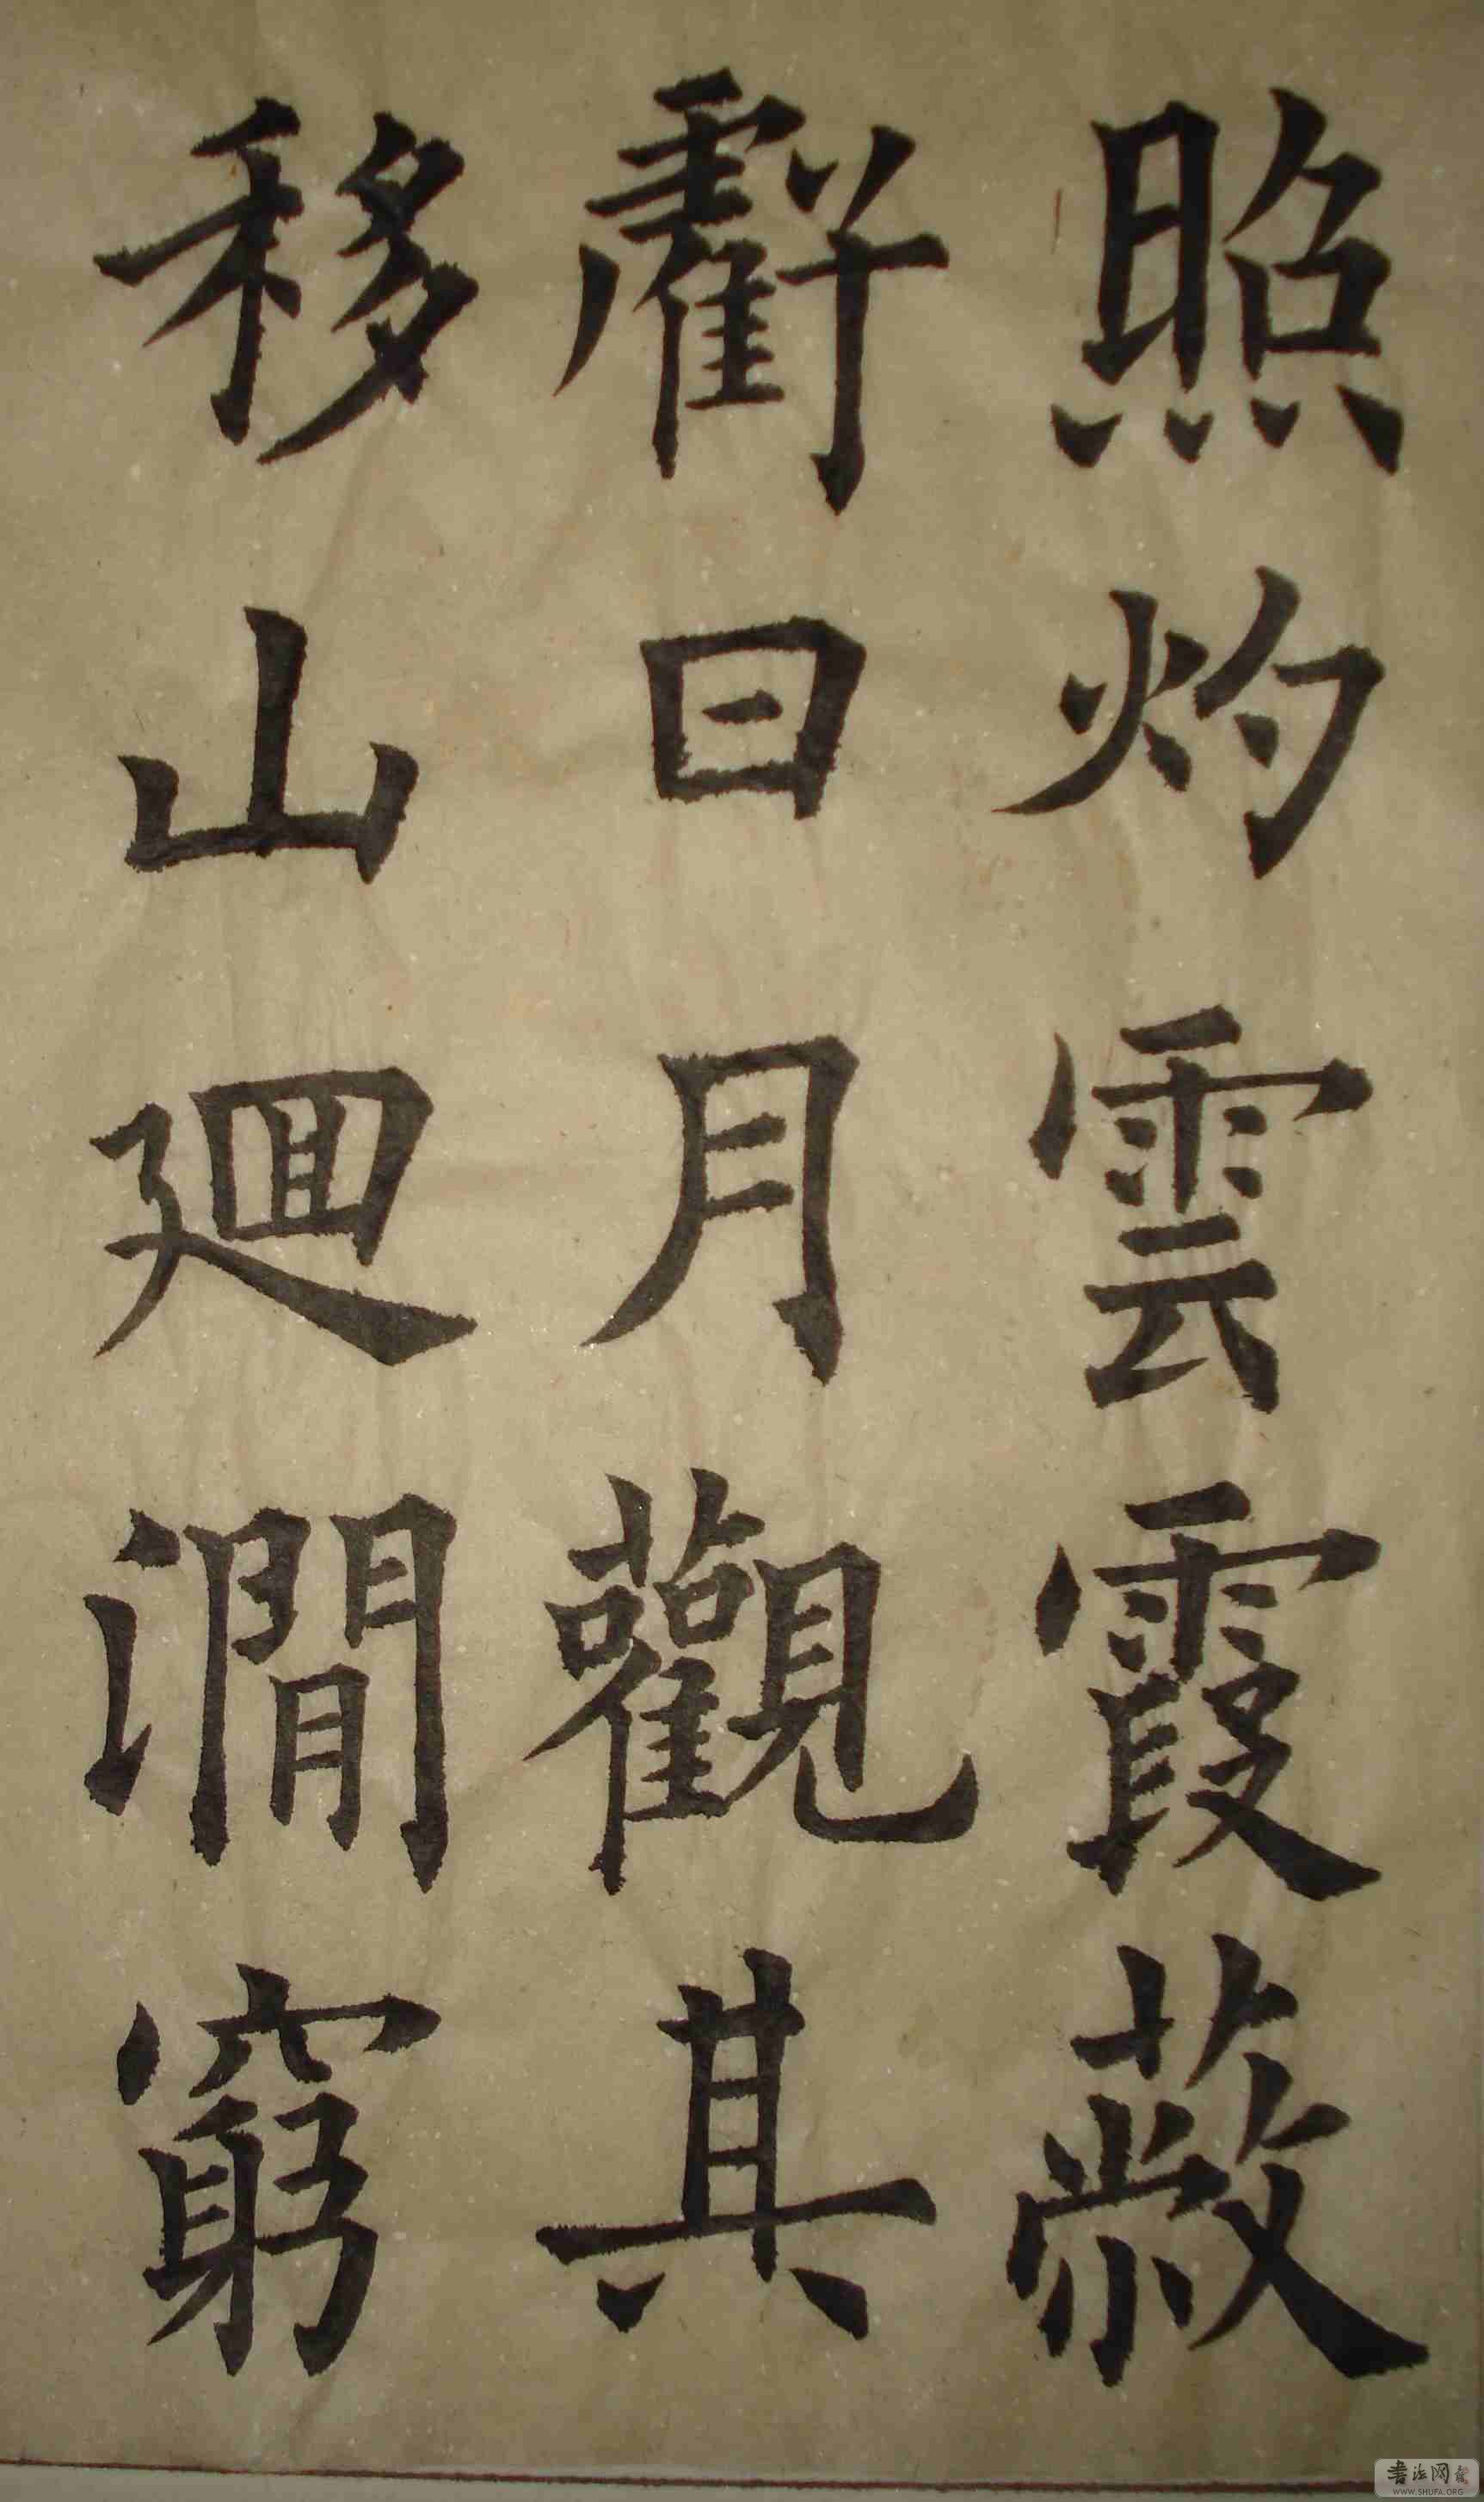 照灼雲霞蔽
虧日月觀其
移山迴澗窮
書法网
WWW.SHUFA.ORG